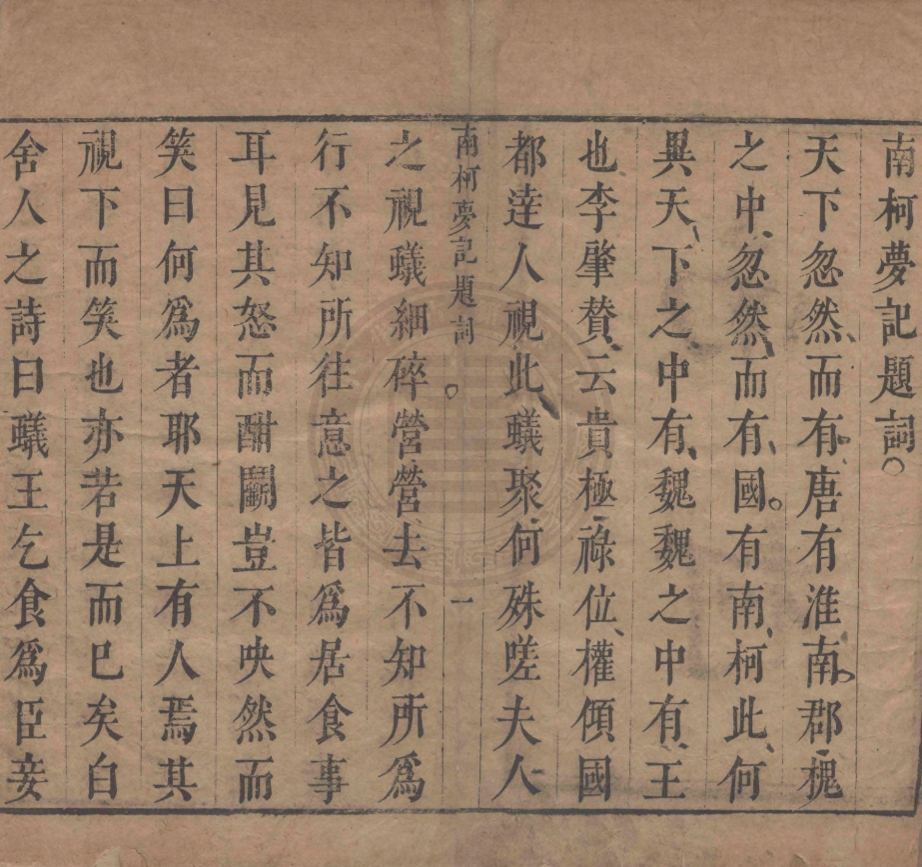 南柯夢記題詞
天下忽然而有唐有淮南郡槐
之中忽然而有國有南柯此何
異天下之中有魏魏之中有王
也李肇贊云貴極祿位權傾國
都達人視此蟻聚何殊嗟夫人
南柯夢記題詞 一
之視蟻細碎營營去不知所爲
行不知所往意之皆爲居食事
耳見其怒而酣鬬豈不吷然而
笑曰何爲者耶天上有人焉其
視下而笑也亦若是而已矣白
舍人之詩曰蟻王乞食爲臣妾